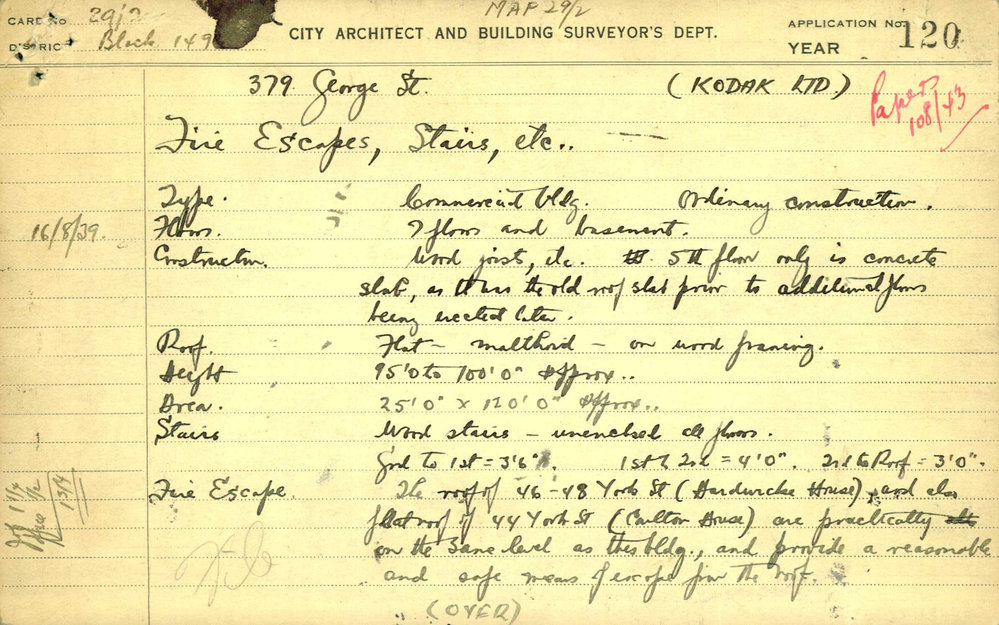 CARD No 29/2
MAP 29/2
DISTRICT Block 149
CITY ARCHITECT AND BUILDING SURVEYOR'S DEPT.
APPLICATION No.
YEAR
120
379 George St. (KODAK LTD.)
Papers 108/43
Fire Escapes, Stairs, etc..
Type. Commercial bldg. Ordinary construction.
16/8/39. Floors. 7 floors and basement.
Construction. Wood joist, etc. 5th floor only is concrete
slab, as it was the old roof slab prior to additional floors
being erected later.
Roof. Flat - malthoid - on wood framing.
Height 95'0 to 100'0" approx..
Area. 25'0" x 120'0" approx..
Stairs Wood stairs - unenclosed all floors.
Grd to 1st = 3'6". 1st to 2nd = 4'0". 2nd to Roof = 3'0".
Fire Escape. The roof of 46-48 York St (Hardwicke House), and also
flat roof of 44 York St (Carlton House) are practically
on the same level as this bldg., and provide a reasonable
and safe means of escape from the roof.
(OVER)